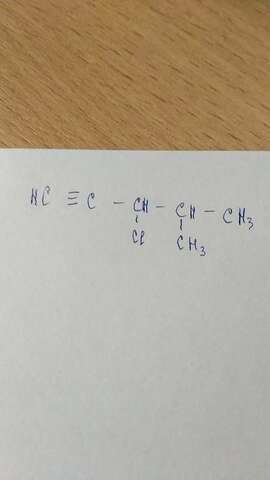 HC ≡ C - CH - CH - CH₃
Cl CH₃